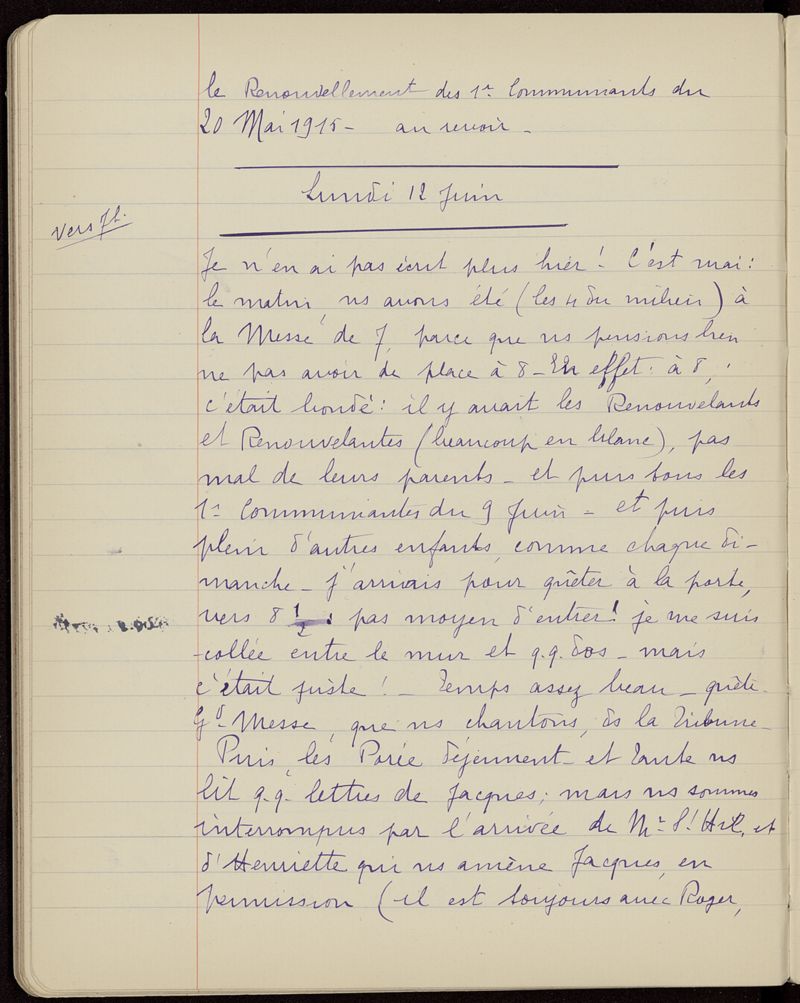 le Renouvellement des 1r Communiants du
20 Mai 1915 - au revoir -
Lundi 12 Juin
vers 7h.
Je n'en ai pas écrit plus hier! C'est mai:
le matin, ns avons été (les 4 du milieu) à
la Messe de 7, parce que ns pensions bien
ne pas avoir de place à 8 - En effet: à 8,
c'était bondé: il y avait les Renouvelants
et Renouvelantes (beaucoup en blanc), pas
mal de leurs parents - et puis tous les
1r Communiantes du 9 Juin - et puis
plein d'autres enfants, comme chaque di-
manche - J'arrivais pour quêter à la porte,
vers 8 1/2: pas moyen d'entrer! je me suis
collée entre le mur et q.q. dos - mais
c'était juste! - Temps assez beau - quête -
Gd Messe, que ns chantons, ds la Tribune -
Puis, les Porée déjeunent - et Tante ns
lit q.q. lettres de Jacques; mais ns sommes
interrompus par l'arrivée de Mr St Hil, et
d'Henriette qui ns amène Jacques, en
permission (il est toujours avec Roger,